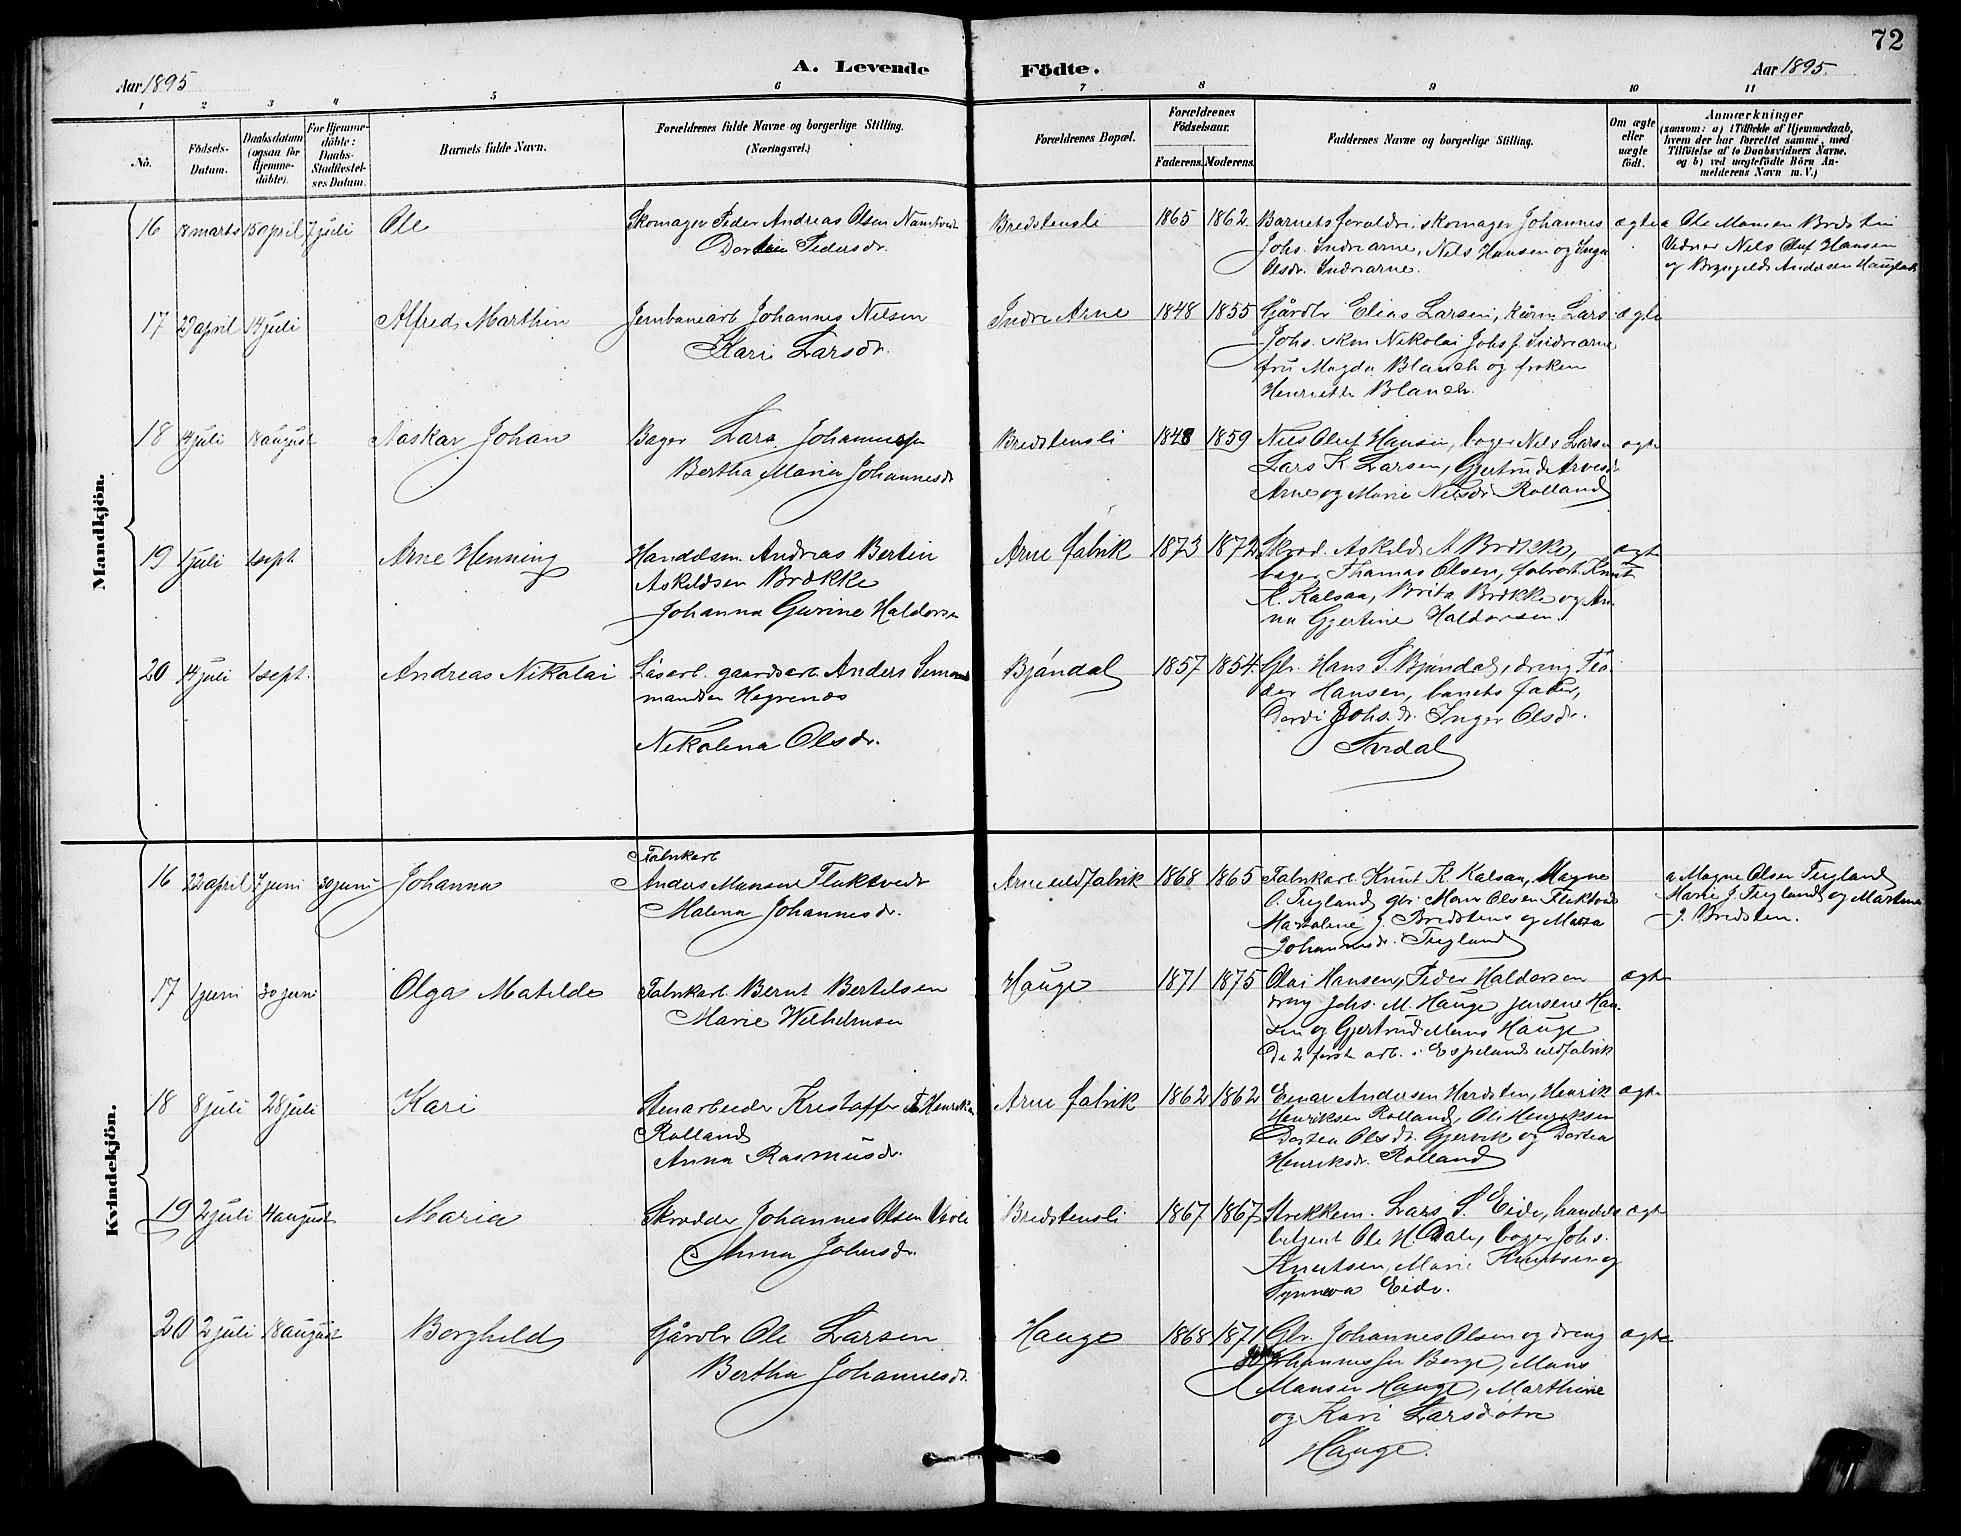 72
Aar 1895
A. Levende Födte.
Aar 1895.
1 2 3 4 5 6 7 8 9 10 11
No.
Födsels-
Datum.
Daabsdatum
(ogsaa for
Hjemme-
döbte).
For Hjemme-
döbte:
Daabs-
Stadfæstel-
ses Datum.
Barnets fulde Navn.
Forældrenes fulde Navne og borgerlige Stilling.
(Næringsvei.)
Forældrenes Bopæl.
Forældrenes
Födselsaar.
Faderens. Moderens.
Faddernes Navne og borgerlige Stilling.
Om ægte
eller
uægte
født.
Anmærkninger
(saasom: a) i Tilfælde af Hjemmedaab,
hvem der har forrettet samme, med
Tilföielse af to Daabsvidners Navne,
og b) ved uægtefödte Börn An-
melderens Navn m. V.)
Mandkjön.
16 8 marts 15 april 7 juli Ole
Skomager Peder Andreas Olsen
Dortea Pedersdr.
Bredstensli 1865 1862
Barnets foreldre, skomager Johannes
Johs. Indrearne, Nels Hansen og Inga
Olsdr. Indrearne.
ægte
a Ole Monsen Bredsten
Vedner Nels Oluf Hansen
og Brynjeld Andersen Haugland
17 29 april 14 juli Alfred Marthin
Jernbanearb Johannes Nilsen
Kari Larsdr.
Indre Arne 1848 1855
Gårdbr Elias Larsen, Lars
Johs. skm Nikolai Johs f. Indrearne,
fru Magda Blauch og frøken
Henriette Blauch.
ægte
18 14 juli 18 august Aaskar Johan
Bager Lars Johannessen
Bertha Maria Johannesdr
Bredstensli 1848 1859
Nils Oluf Hansen, bager Nels Larsen
Lars K Larsen, Gjertrud Arnesdr
Arne og Marie Nilsdr Rolland
ægte
19 1 juli 1 sept. Arne Henning
Handelsm. Andreas Bertin
Askeldsen Brække
Johanna Gurine Haldorsen
Arne fabrik 1873 1872
Skred. Askeld A Brække,
bager Thomas Olsen, fabrarb. Knut
K. Kalsaa, Brita Brække og An-
na Gjertine Haldorsen.
ægte
20 14 juli 1 sept. Andreas Nikolai
Løsarb. gaardsarb. Anders Simon
Hegrenes
Nikolena Olsdr.
Bjøndal 1857 1854.
Gbr. Hans S. Bjøndal, dreng Pe-
der Hansen, barnets fader,
Dordi Johs.dr. Inger Olsdr.
Kvindekjön.
16 22 april 7 juni 30 juni Johanna
Fabrikarb
Anders Monsen Flaktvedt
Malena Johannesdr.
Arne uldfabrik 1868 1865
Fabrikarb. Knut K. Kalsaa, Magne
O. Teigland, gbr. Mons Olsen Flektvedt
J. Bredsten og Marta
Johannesdr. Teigland
a Magne Olsen Teigland
Marie J. Teigland og Martha
J. Bredsten.
17 1 juni 30 juni Olga Matilde
Fabrikarb. Bernt Bertelsen
Marie Wilhelmsen
Hauge 1871 1875
Olai Hansen, Peder Haldorsen
dreng Johs. M. Hauge, Jensene Han-
sen og Gjertrud Mons Hauge
De 2 første arb. i Espelands uldfabrik
ægte
18 8 juli 28 juli Kari
Stenarbeider Kristoffer Henriksen
Rolland
Anna Rasmusdr.
Arne fabrik 1862 1862
Einar Andersen Herdsten, Henrik
Henriksen Rolland, Ole Henriksen
Dortea Olsdr. Gjervik og Dortea
Henriksdr. Rolland
ægte
19 2 juli 4 august Maria
Skredder Johannes Olsen
Anna Johnsdr.
Bredstensli 1867 1867
Strekkem. Lars S. Eide, handels-
betjent Ole H. Dale, bager Johs.
Knutsen, Marie Knutsen og
Synneva Eide.
ægte
20 2 juli 18 august Borghild
Gårdbr Ole Larsen
Bertha Johannesdr.
Hauge 1868 1871
Gbr. Johannes Olsen og dreng
Johannessen Borge, Mons
Monsen Hauge, Marthine
og Kari Larsdøtre
Hauge.
ægte